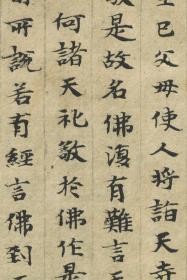 已父母使人將詣天
是故名佛復有難言
何諸天礼敬於佛作是
所說若有經言佛到